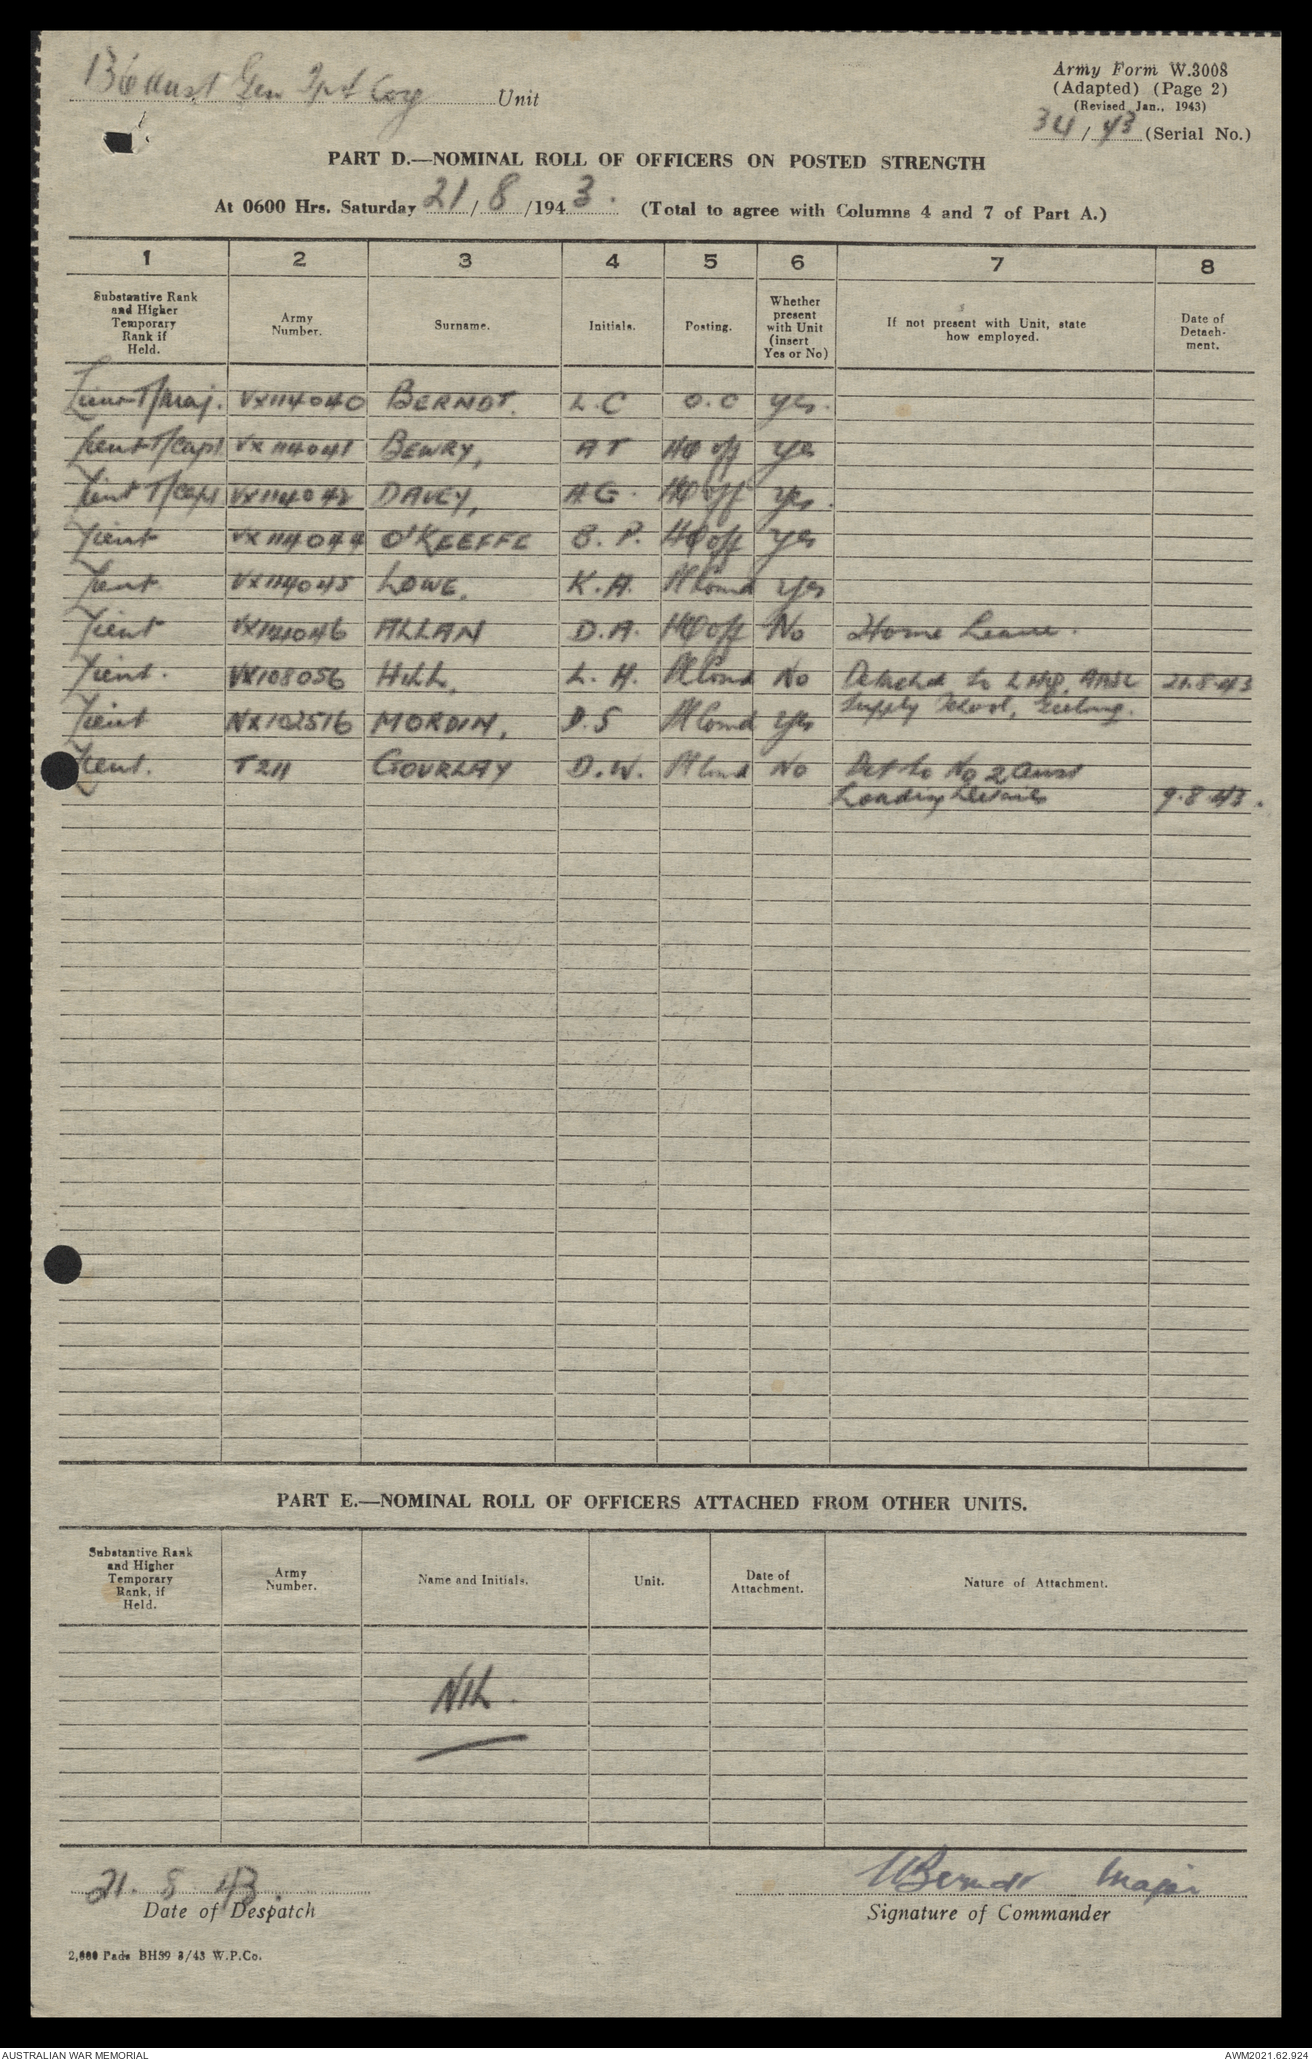 136 Aust Gen Tpt Coy Unit
Army Form W.3008
(Adapted) (Page 2)
(Revised Jan., 1943)
34/43 (Serial No.)
PART D.—NOMINAL ROLL OF OFFICERS ON POSTED STRENGTH
At 0600 Hrs. Saturday 21/8/1943. (Total to agree with Columns 4 and 7 of Part A.)
1 2 3 4 5 6 7 8
Substantive Rank and Higher Temporary Rank if Held.
Army Number.
Surname.
Initials.
Posting.
Whether present with Unit (insert Yes or No)
If not present with Unit, state how employed.
Date of Detachment.
Lieut T/Maj. VX114040 BERNDT. L.C O.C Yes.
Lieut T/Capt VX114041 BEWRY, A T HQ off Yes
Lieut T/Capt VX114042 DAVEY, A.G. HQ off Yes.
Lieut VX114044 O'KEEFFE B. P. HQ off Yes
Lieut. VX114045 LOWE, K.A. Pl Comd Yes
Lieut VX141046 ALLAN D.A. HQ off No Home Leave.
Lieut. VX108056 HILL, L. H. Pl Comd No Detached to LHQ, AASC 21.8.43
Supply School, Geelong.
Lieut NX102516 MORDIN, D.S Pl Comd Yes
Lieut. T211 GOURLAY D.W. Pl Comd No Det to No 2 Aust
Loading Details 9.8.43.
PART E.—NOMINAL ROLL OF OFFICERS ATTACHED FROM OTHER UNITS.
Substantive Rank and Higher Temporary Rank, if Held.
Army Number.
Name and Initials.
Unit.
Date of Attachment.
Nature of Attachment.
NIL.
21. 8. 43. LCBerndt Major
Date of Despatch Signature of Commander
2,000 Pads BH39 3/43 W.P.Co.
AUSTRALIAN WAR MEMORIAL AWM2021.62.924